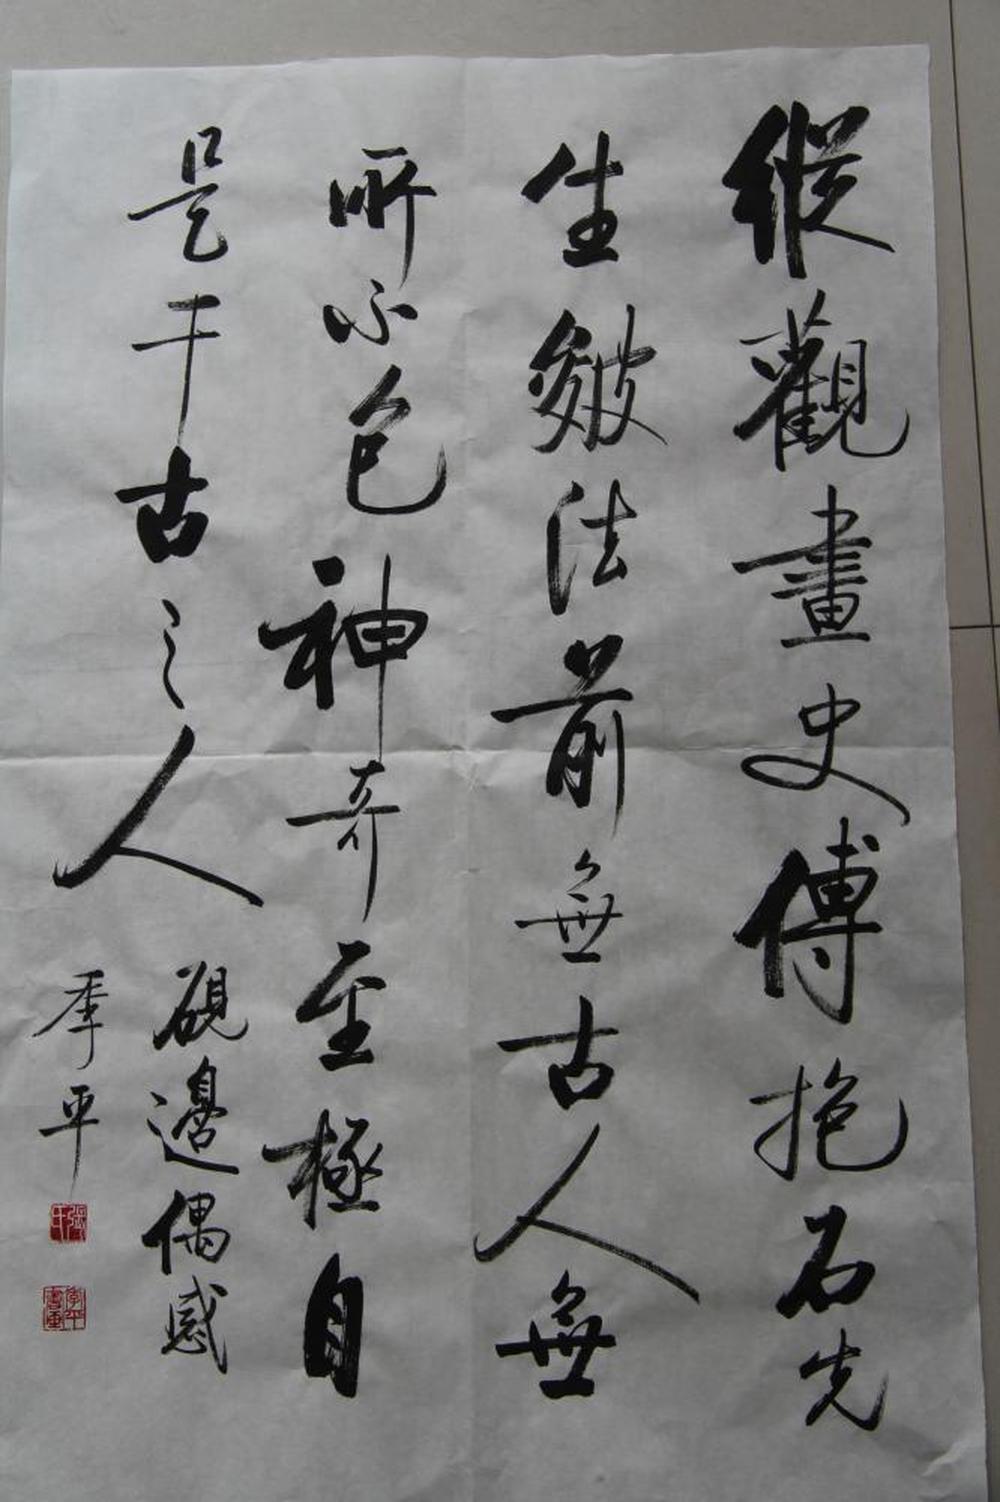 縱觀畫史傅抱石先
生皴法前無古人無
所不包神奇至極自
是千古之人
硯邊偶感
季平
張氏
季平書画